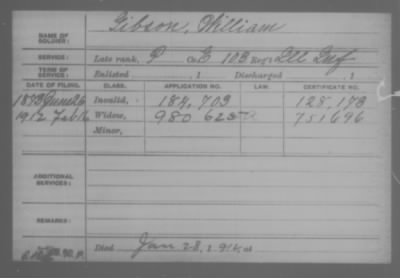 Gibson, William
NAME OF SOLDIER:
SERVICE: Late rank, P Co. E, 103 Reg't Ill Inf
TERM OF SERVICE: Enlisted , 1 Discharged , 1
DATE OF FILING. CLASS. APPLICATION NO. LAW. CERTIFICATE NO.
June 26 Invalid, 184,703 128,173
1912 Feb 16 Widow, 980 625 751696
Minor,
ADDITIONAL SERVICES:
REMARKS:
Died Jan 28, 191 at